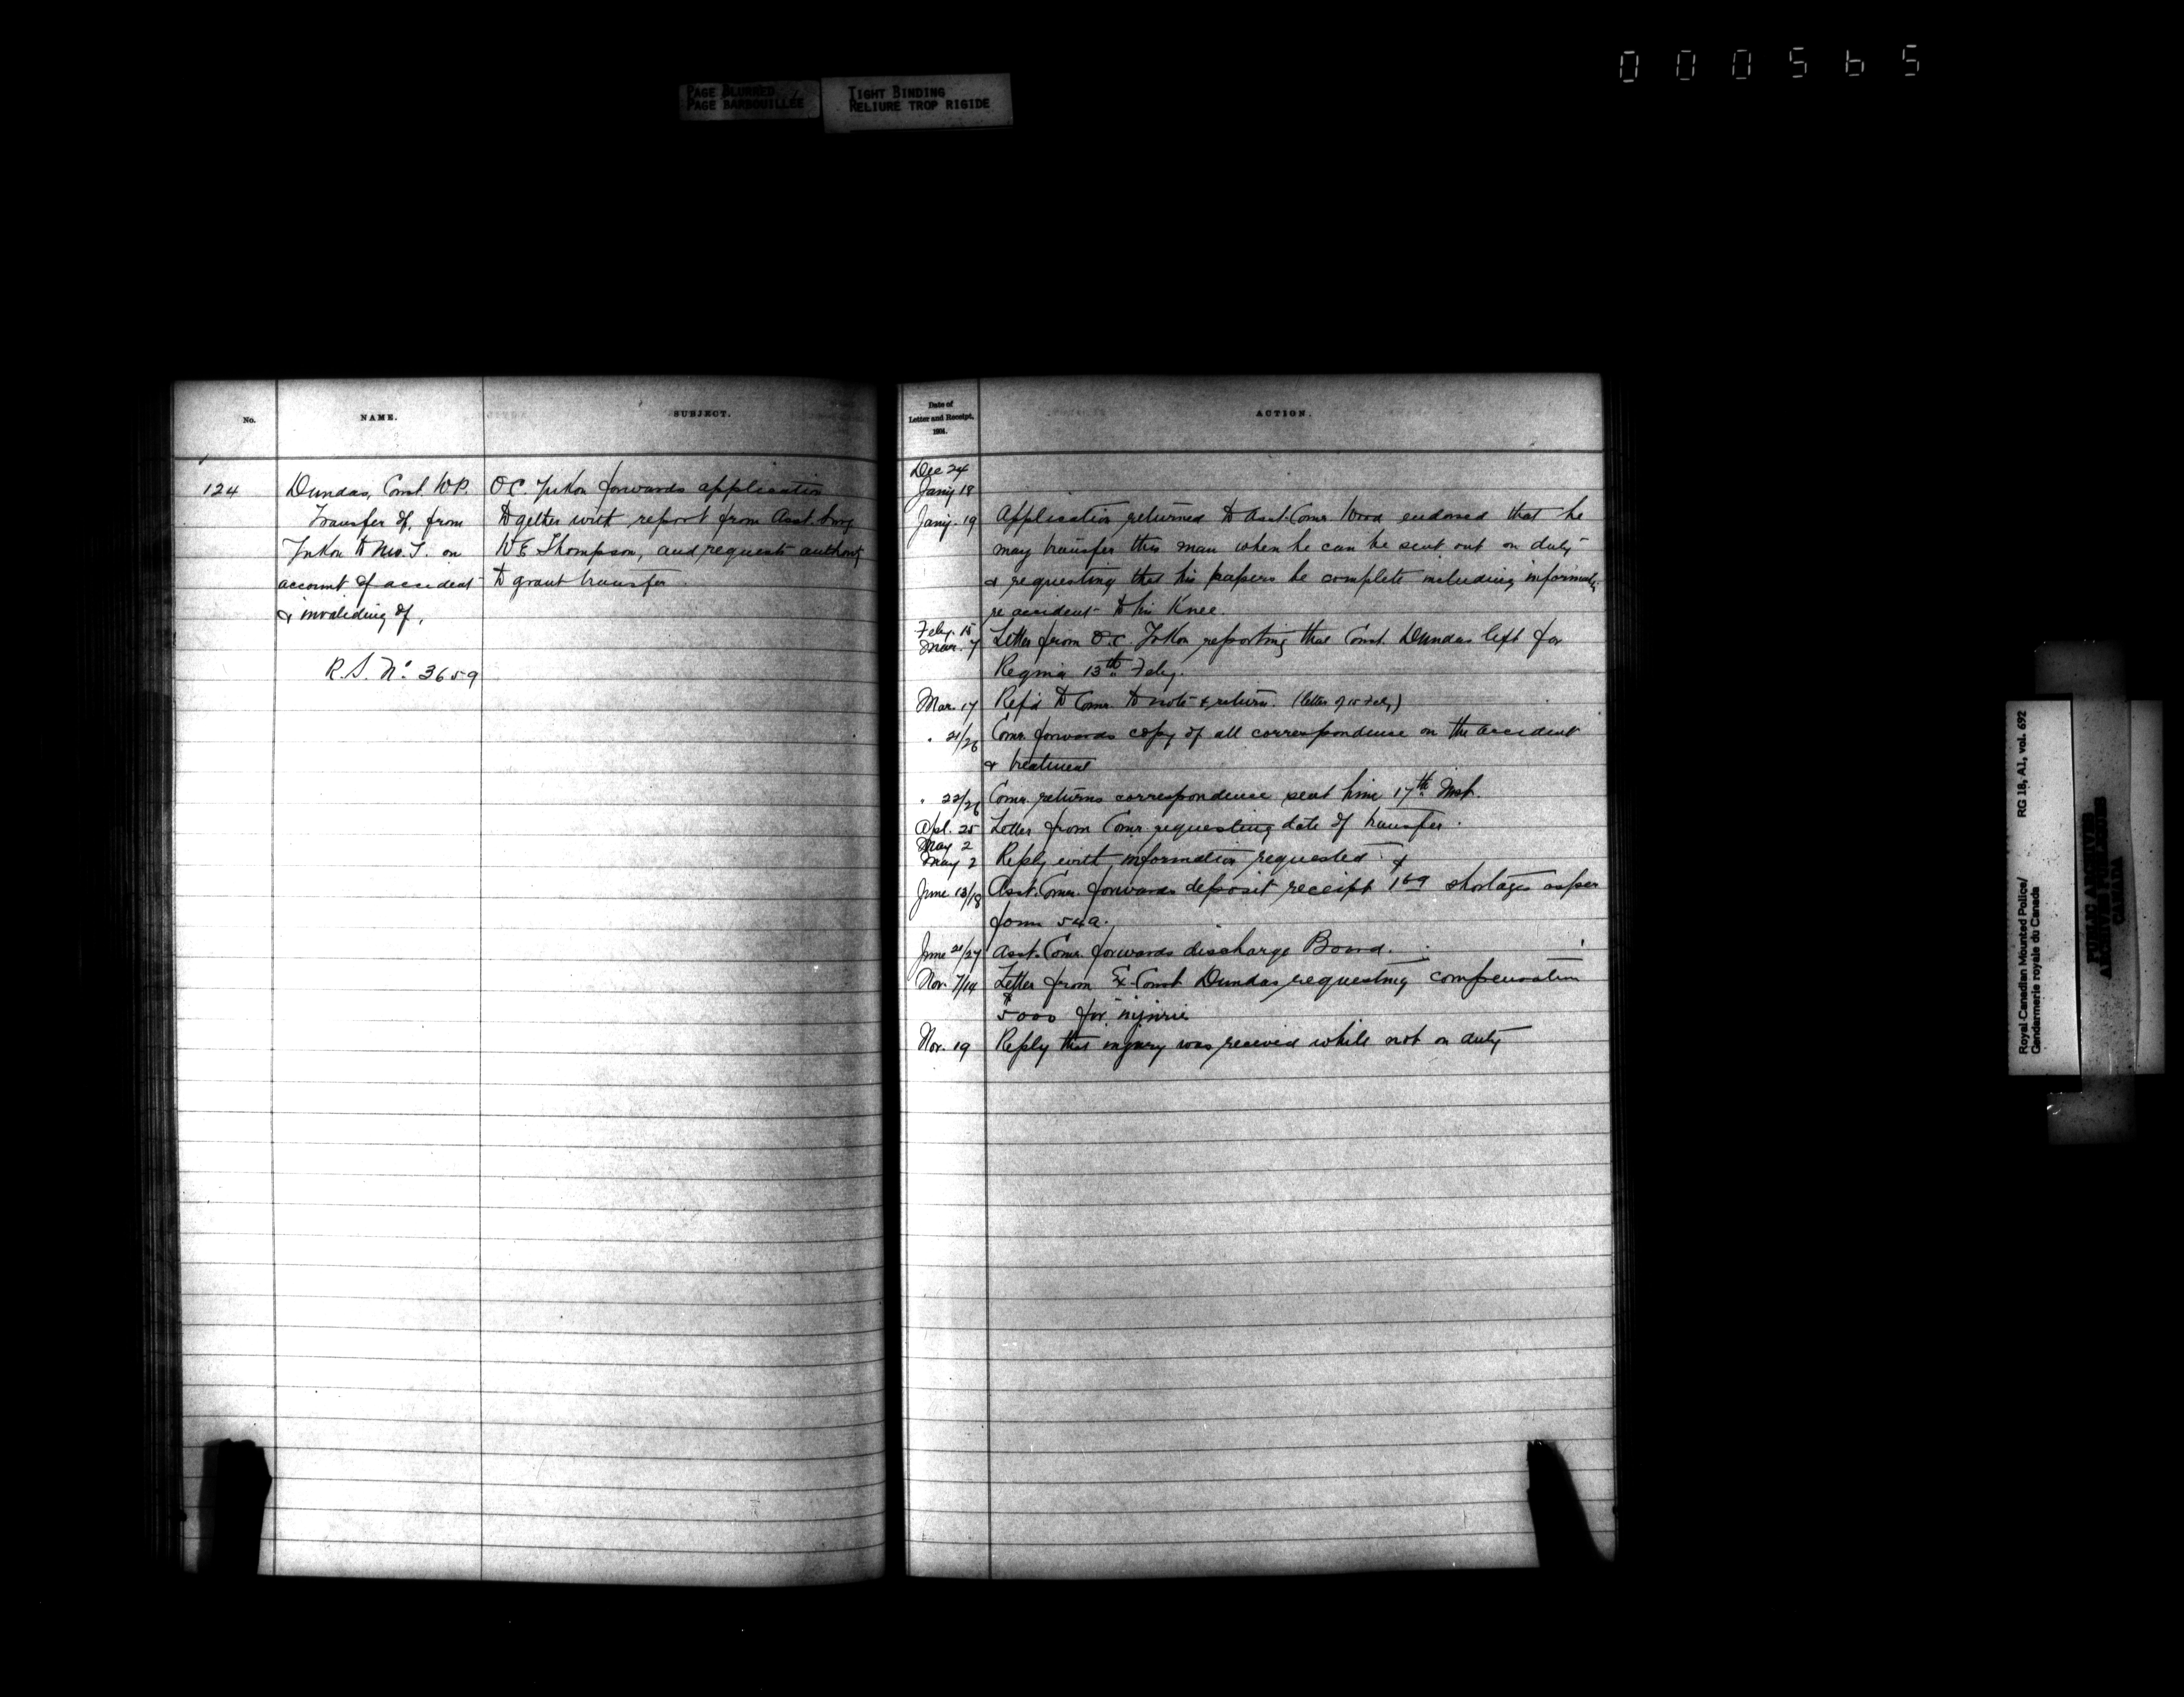 000565
PAGE BLURRED
PAGE BARBOUILLÉE
TIGHT BINDING
RELIURE TROP RIGIDE
No.
NAME.
SUBJECT.
124
Dundas, Const. W.P.
Transfer of, from
Yukon to N.W.T. on
account of accident
& invaliding of,
R.S. No. 3659
O.C. Yukon forwards application
together with report from Asst. Surg
W.E. Thompson, and requests authority
to grant transfer
Date of
Letter and Receipt,
1904.
ACTION.
Dec 24
Jany 18
Jany. 19 Application returned to Asst. Comr. Wood endorsed that he
may transfer this man when he can be sent out on duty
& requesting that his papers be complete including informatn.
re accident to his Knee.
Feby. 15
Mar. 7 Letter from O.C. Yukon reporting that Const. Dundas left for
Regina 13th Feby.
Mar. 17 Ref'd to Comr. to note & return. (letter of 15 Feby)
" 21/26 Comr. forwards copy of all correspondence on the accident
& treatment
" 22/26 Comr. returns correspondence sent him 17th Inst.
Apl. 25 Letter from Comr. requesting date of transfer.
May 2
May 2 Reply with information requested
June 13/18 Asst. Comr. forwards deposit receipt $1.69 shortages as per
form 54a.
June 21/27 Asst. Comr. forwards discharge Board.
Nov. 7/14 Letter from Ex-Const Dundas requesting compensation
$5000 for injuries
Nov. 19 Reply that injury was received while not on duty
Royal Canadian Mounted Police/
Gendarmerie royale du Canada
RG 18, A1, vol. 692
PUBLIC ARCHIVES
ARCHIVES PUBLIQUES
CANADA